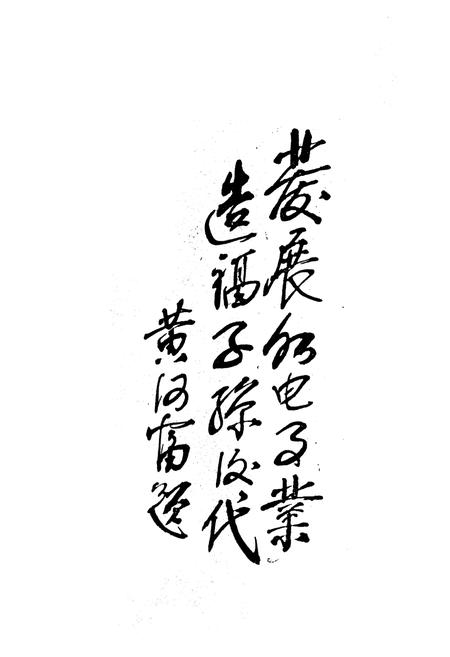 發展水电事業
造福子孫後代
黄河富